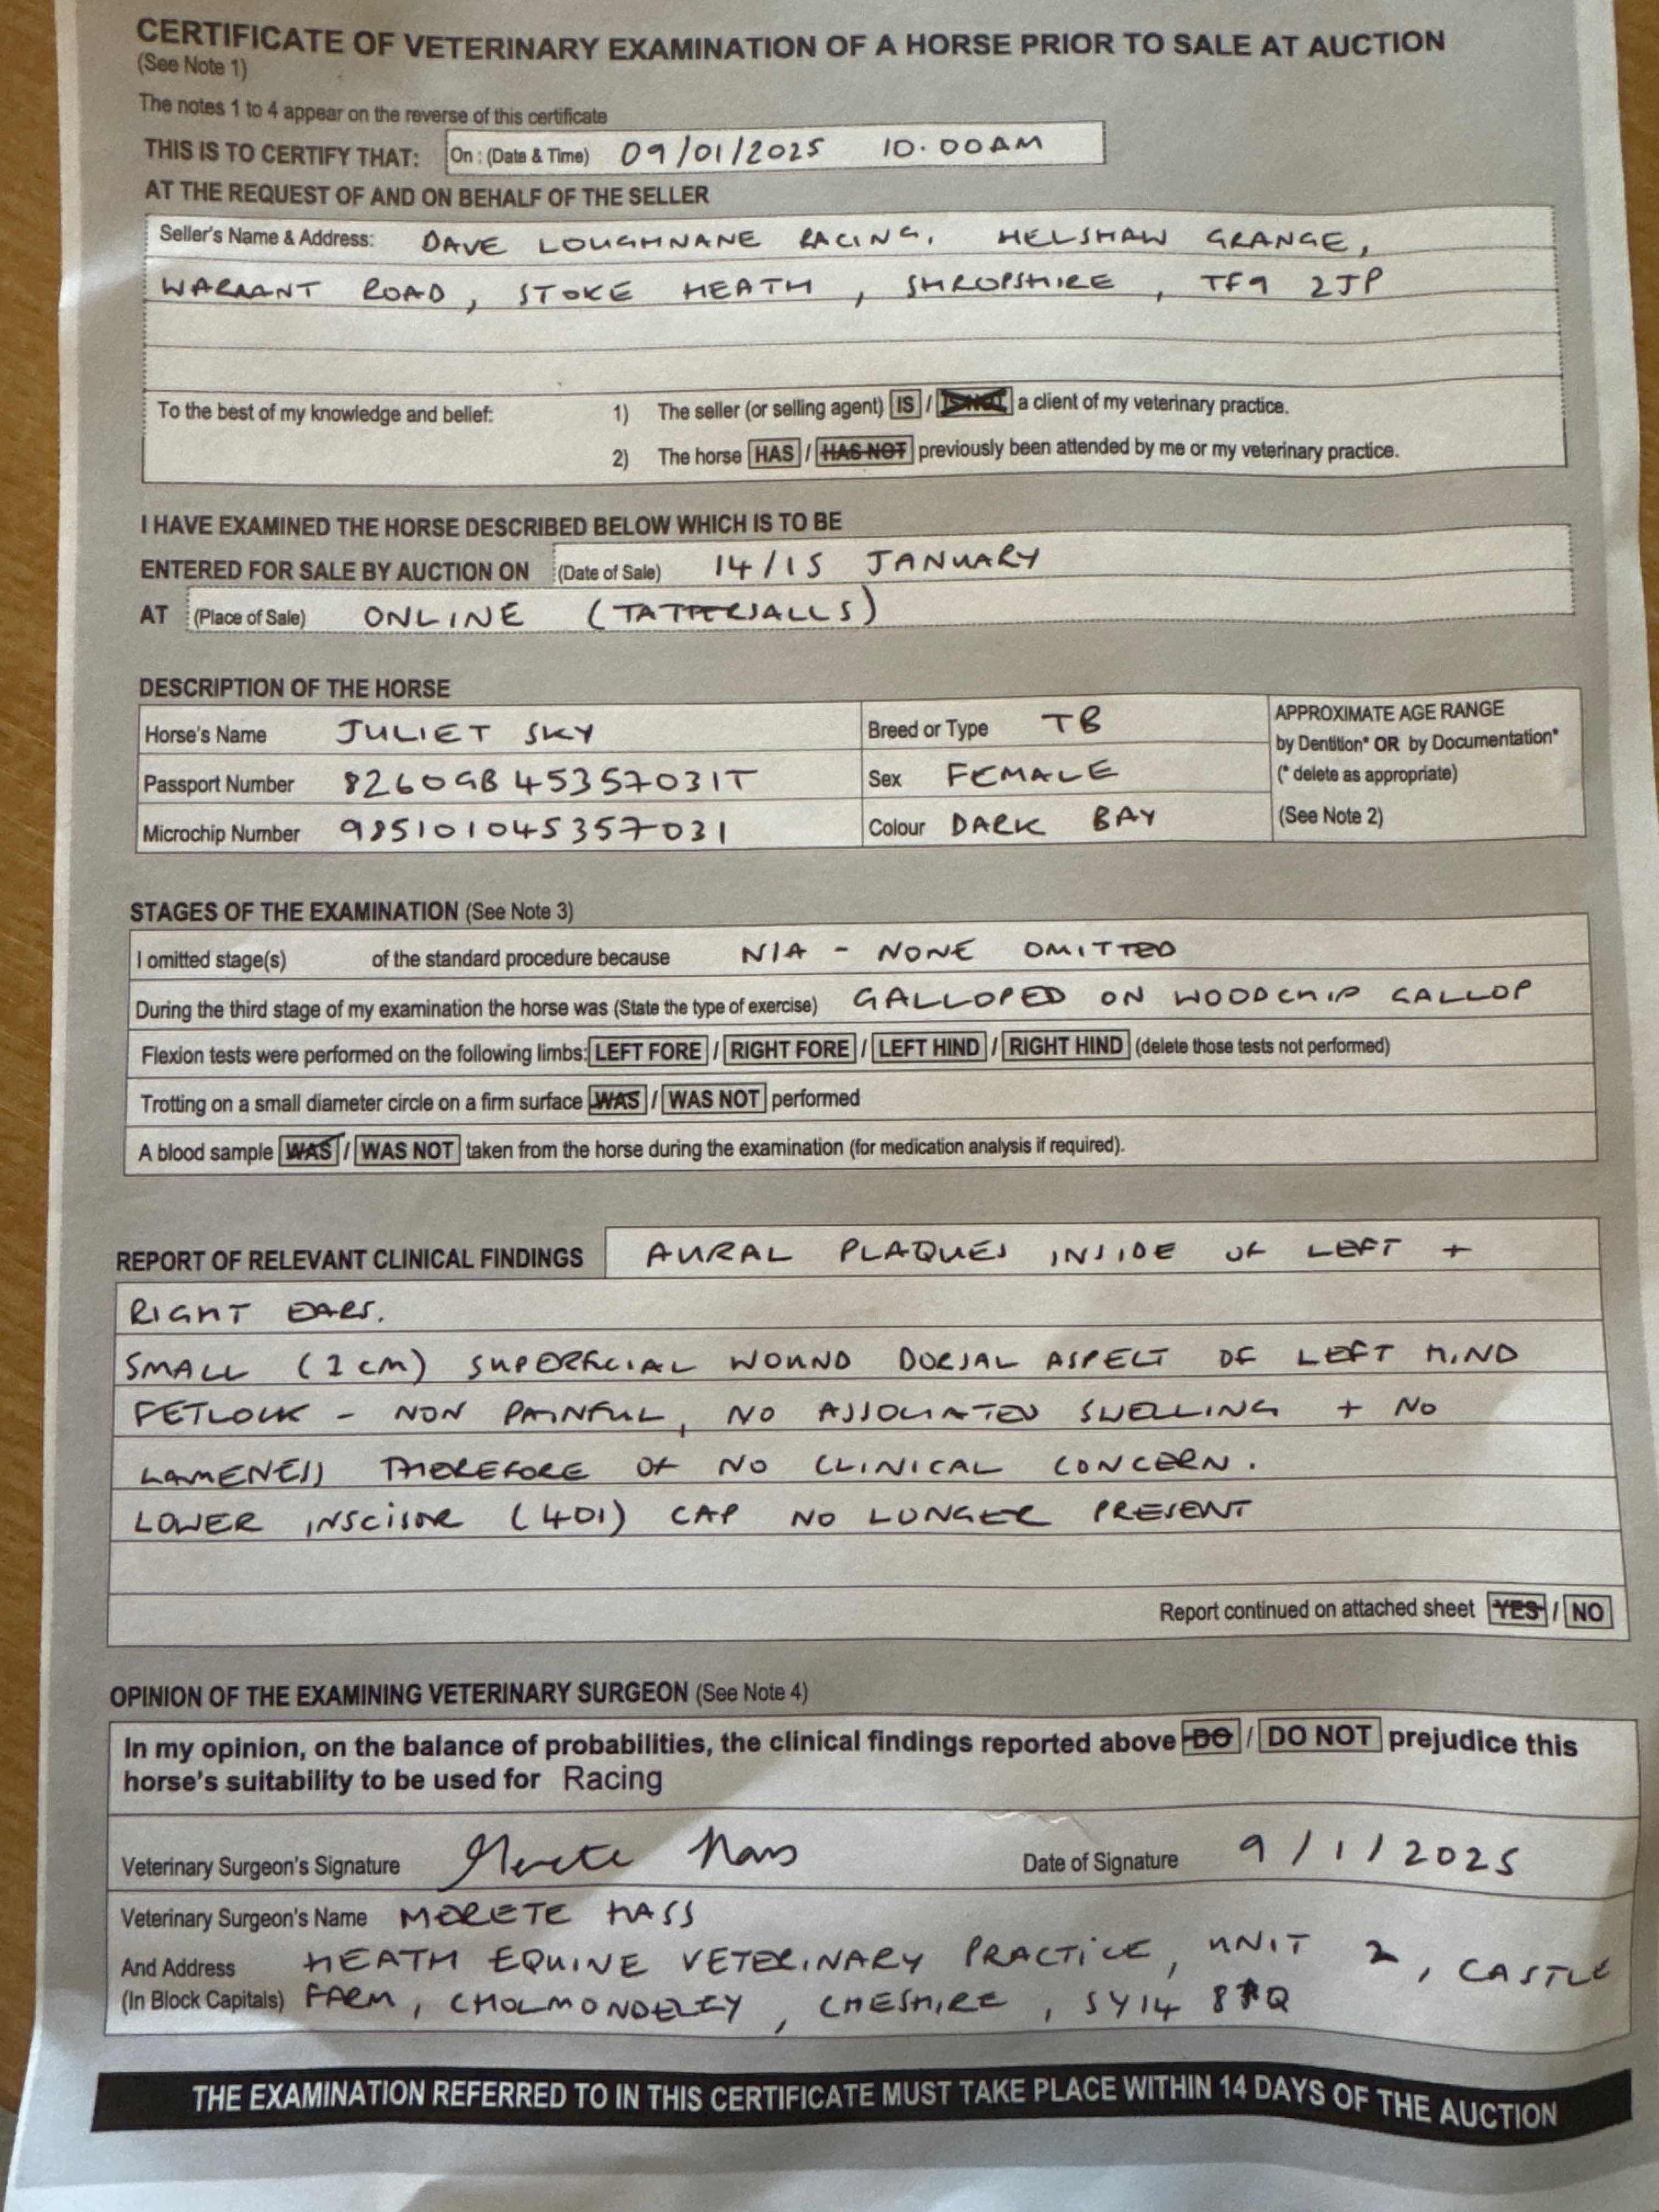 CERTIFICATE OF VETERINARY EXAMINATION OF A HORSE PRIOR TO SALE AT AUCTION
(See Note 1)
The notes 1 to 4 appear on the reverse of this certificate
THIS IS TO CERTIFY THAT: On : (Date & Time) 09/01/2025 10.00AM
AT THE REQUEST OF AND ON BEHALF OF THE SELLER
Seller's Name & Address: DAVE LOUGHNANE RACING, HELSHAW GRANGE,
WARRANT ROAD, STOKE HEATH, SHROPSHIRE, TF9 2JP
To the best of my knowledge and belief: 1) The seller (or selling agent) IS / IS NOT a client of my veterinary practice.
2) The horse HAS / HAS NOT previously been attended by me or my veterinary practice.
I HAVE EXAMINED THE HORSE DESCRIBED BELOW WHICH IS TO BE
ENTERED FOR SALE BY AUCTION ON (Date of Sale) 14/15 JANUARY
AT (Place of Sale) ONLINE (TATTERSALLS)
DESCRIPTION OF THE HORSE
Horse's Name JULIET SKY Breed or Type TB APPROXIMATE AGE RANGE
by Dentition* OR by Documentation*
Passport Number 8260GB45357031T Sex FEMALE (* delete as appropriate)
Microchip Number 985101045357031 Colour DARK BAY (See Note 2)
STAGES OF THE EXAMINATION (See Note 3)
I omitted stage(s) of the standard procedure because N/A - NONE OMITTED
During the third stage of my examination the horse was (State the type of exercise) GALLOPED ON WOODCHIP GALLOP
Flexion tests were performed on the following limbs: LEFT FORE / RIGHT FORE / LEFT HIND / RIGHT HIND (delete those tests not performed)
Trotting on a small diameter circle on a firm surface WAS / WAS NOT performed
A blood sample WAS / WAS NOT taken from the horse during the examination (for medication analysis if required).
REPORT OF RELEVANT CLINICAL FINDINGS AURAL PLAQUES INSIDE OF LEFT +
RIGHT EARS.
SMALL (1cm) SUPERFICIAL WOUND DORSAL ASPECT OF LEFT HIND
FETLOCK - NON PAINFUL, NO ASSOCIATED SWELLING + NO
LAMENESS THEREFORE OF NO CLINICAL CONCERN.
LOWER INSCISOR (401) CAP NO LONGER PRESENT
Report continued on attached sheet YES / NO
OPINION OF THE EXAMINING VETERINARY SURGEON (See Note 4)
In my opinion, on the balance of probabilities, the clinical findings reported above DO / DO NOT prejudice this
horse's suitability to be used for Racing
Veterinary Surgeon's Signature Merete Hass Date of Signature 9/1/2025
Veterinary Surgeon's Name MERETE HASS
And Address HEATH EQUINE VETERINARY PRACTICE, UNIT 2, CASTLE
(In Block Capitals) FARM, CHOLMONDELEY, CHESHIRE, SY14 8AQ
THE EXAMINATION REFERRED TO IN THIS CERTIFICATE MUST TAKE PLACE WITHIN 14 DAYS OF THE AUCTION